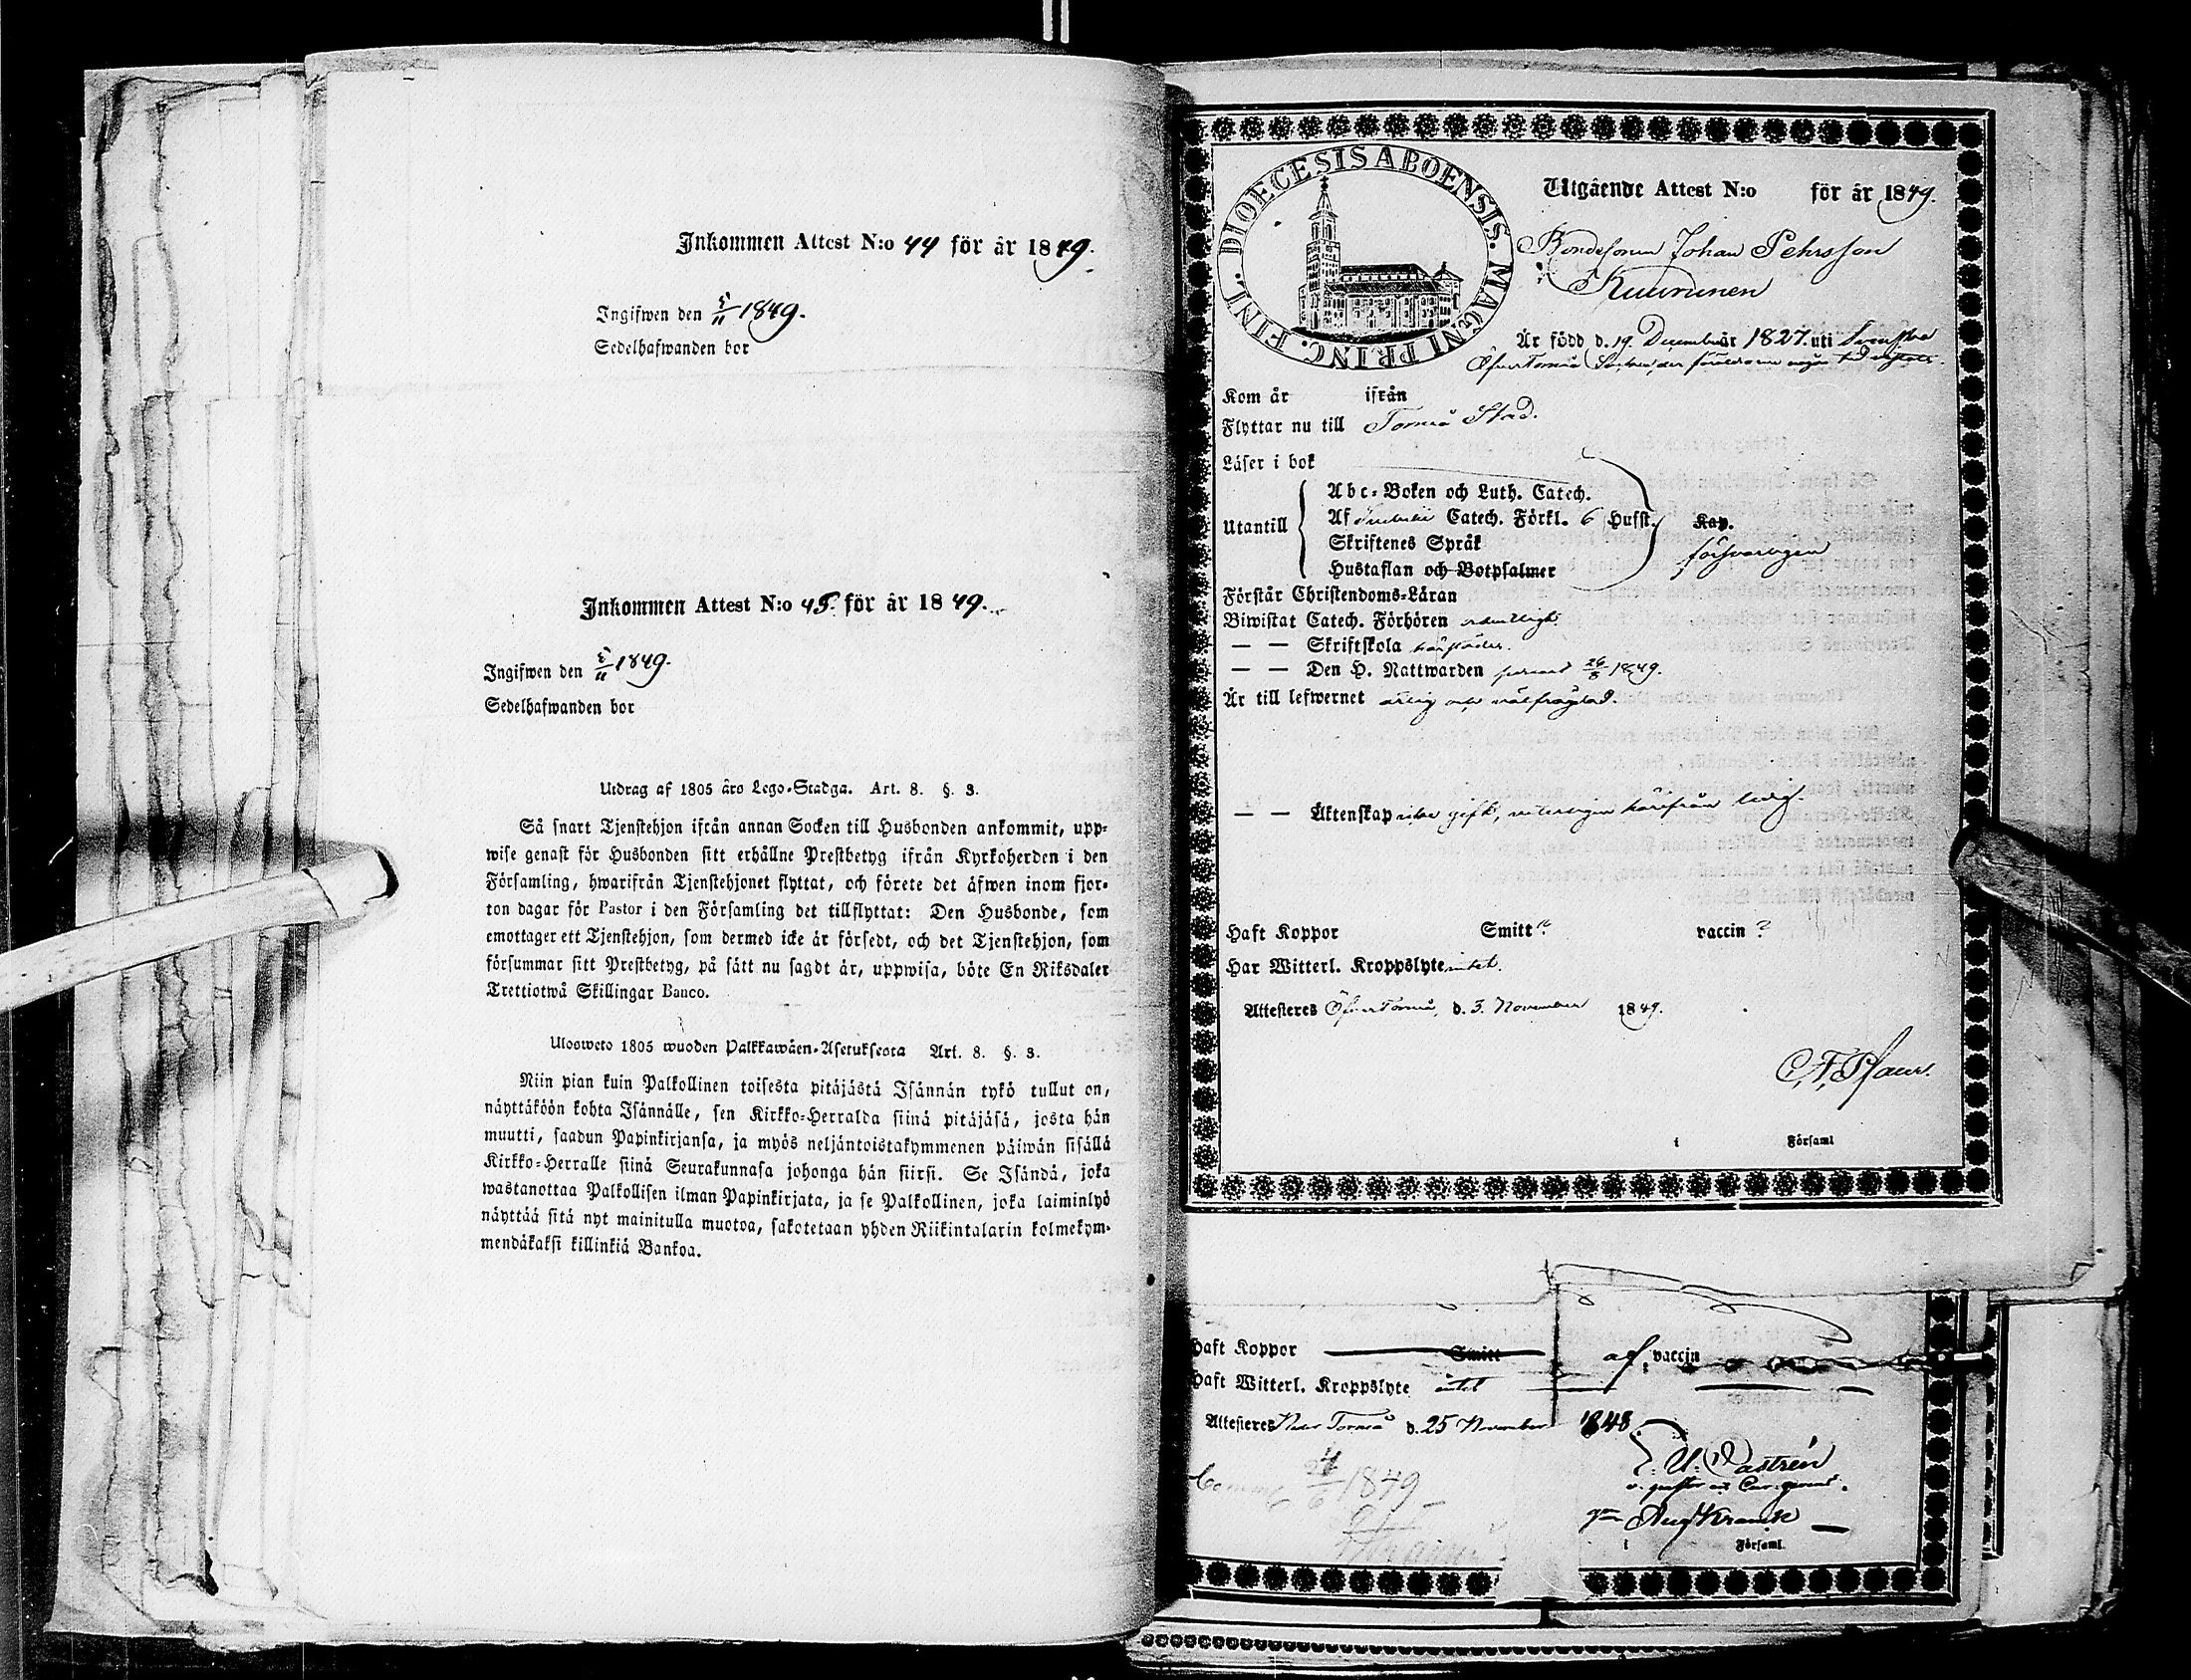 Inkommen Attest N:o 44 för år 1849.
Ingifwen den 5/11 1849.
Sedelhafwanden bor
Inkommen Attest N:o 45. för år 1849.
Ingifwen den 5/11 1849.
Sedelhafwanden bor
Utdrag af 1805 års Lego-Stadga. Art. 8. §. 3.
Så snart Tjenstehjon ifrån annan Socken till Husbonden ankommit, upp-
wise genast för Husbonden sitt erhållne Prestbetyg ifrån Kyrkoherden i den
Församling, hwarifrån Tjenstehjonet flyttat, och förete det äfwen inom fjor-
ton dagar för Pastor i den Församling det tillflyttat: Den Husbonde, som
emottager ett Tjenstehjon, som dermed icke är försedt, och det Tjenstehjon, som
försummar sitt Prestbetyg, på sätt nu sagdt är, uppwisa, böte En Riksdaler
Trettiotwå Skillingar Banco.
Ulosweto 1805 wuoden Palkkawäen-Asetuksesta Art. 8. §. 3.
Niin pian kuin Palkollinen toisesta pitäjästä Isännän tykö tullut on,
näyttäköön kohta Isännälle, sen Kirkko-Herralda siinä pitäjäsä, josta hän
muutti, saadun Papinkirjansa, ja myös neljäntoistakymmenen päiwän sisällä
Kirkko-Herralle siinä Seurakunnasa johonga hän siirsi. Se Isändä, joka
wastanottaa Palkollisen ilman Papinkirjata, ja se Palkollinen, joka laiminlyö
näyttää sitä nyt mainitulla muotoa, sakotetaan yhden Riikintalarin kolmekym-
mendäkaksi killinkiä Bankoa.
DIOECESIS ABOENSIS. MAGNI PRINC. FINL.
Utgående Attest N:o för år 1849.
Bondesonen Johan Pehrsson
Kuurunen
Är född d. 19. December år 1827. uti Svenska
ÖfverTorneå Socken, der föräldrarne någon tid vistats.
Kom år ifrån
Flyttar nu till Torneå Stad.
Läser i bok
Utantill
Abc-Boken och Luth. Catech.
Af Catech. Förkl. 6 Hufst. Kap.
Skriftenes Språk försvarligen
Hustaflan och Botpsalmer
Förstår Christendoms-Läran
Biwistat Catech. Förhören ordentligt
— — Skriftskola härstädes.
— — Den H. Nattwarden senast 26/8 1849.
Är till lefwernet ärlig och välfrägdad.
— — Äktenskap icke gift, witterligen härifrån ledig.
Haft Koppor Smitt vaccin
Har Witterl. Kroppslyte intet.
Attesteres ÖfverTorneå, d. 3. November 1849.
i Församl
Haft Koppor Smitt af vaccin
Haft Witterl. Kroppslyte intet
Attesteres Neder Torneå d. 25 November 1848
E. U. Castrén
Aug Kranck
4/6 1849
i Församl.